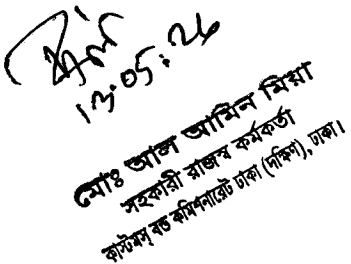 13.05.26
মোঃ আল আমিন মিয়া
সহকারী রাজস্ব কর্মকর্তা
কাস্টমস্ বন্ড কমিশনারেট ঢাকা (দক্ষিণ), ঢাকা।